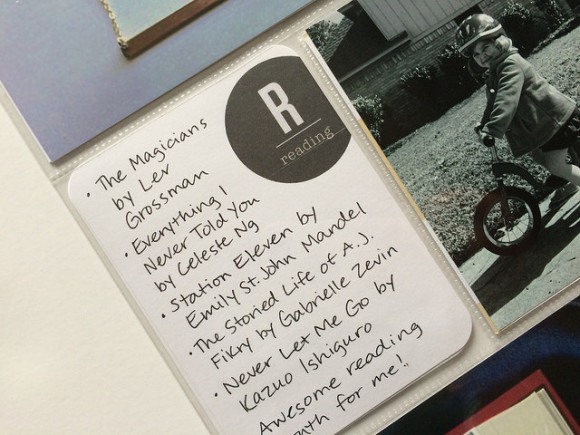 R
reading
• The Magicians
by Lev
Grossman
• Everything I
Never Told You
by Celeste Ng
• Station Eleven by
Emily St. John Mandel
• The Storied Life of A.J.
Fikry by Gabrielle Zevin
• Never Let Me Go by
Kazuo Ishiguro
Awesome reading
for me!!